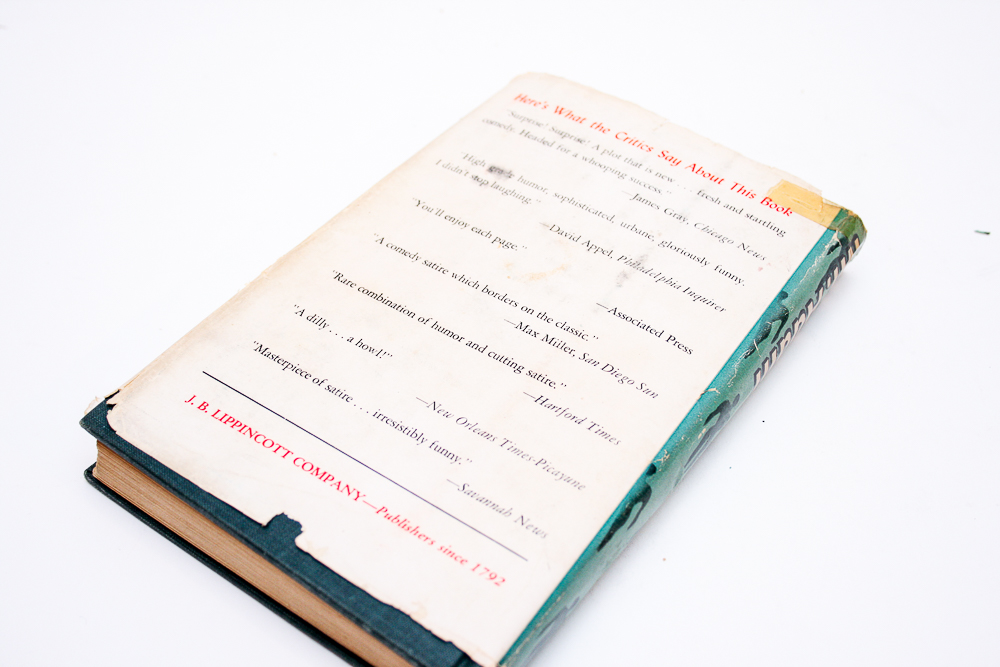 Here's What the Critics Say About This Book
"Surprise! Surprise! A plot that is new . . . fresh and startling
comedy. Headed for a whooping success."
—James Gray, Chicago News
"High humor, sophisticated, urbane, gloriously funny.
I didn't stop laughing."
—David Appel, Philadelphia Inquirer
"You'll enjoy each page."
—Associated Press
"A comedy satire which borders on the classic."
—Max Miller, San Diego Sun
"Rare combination of humor and cutting satire."
—Hartford Times
"A dilly . . . a howl!"
—New Orleans Times-Picayune
"Masterpiece of satire . . . irresistibly funny."
—Savannah News
J. B. LIPPINCOTT COMPANY—Publishers since 1792